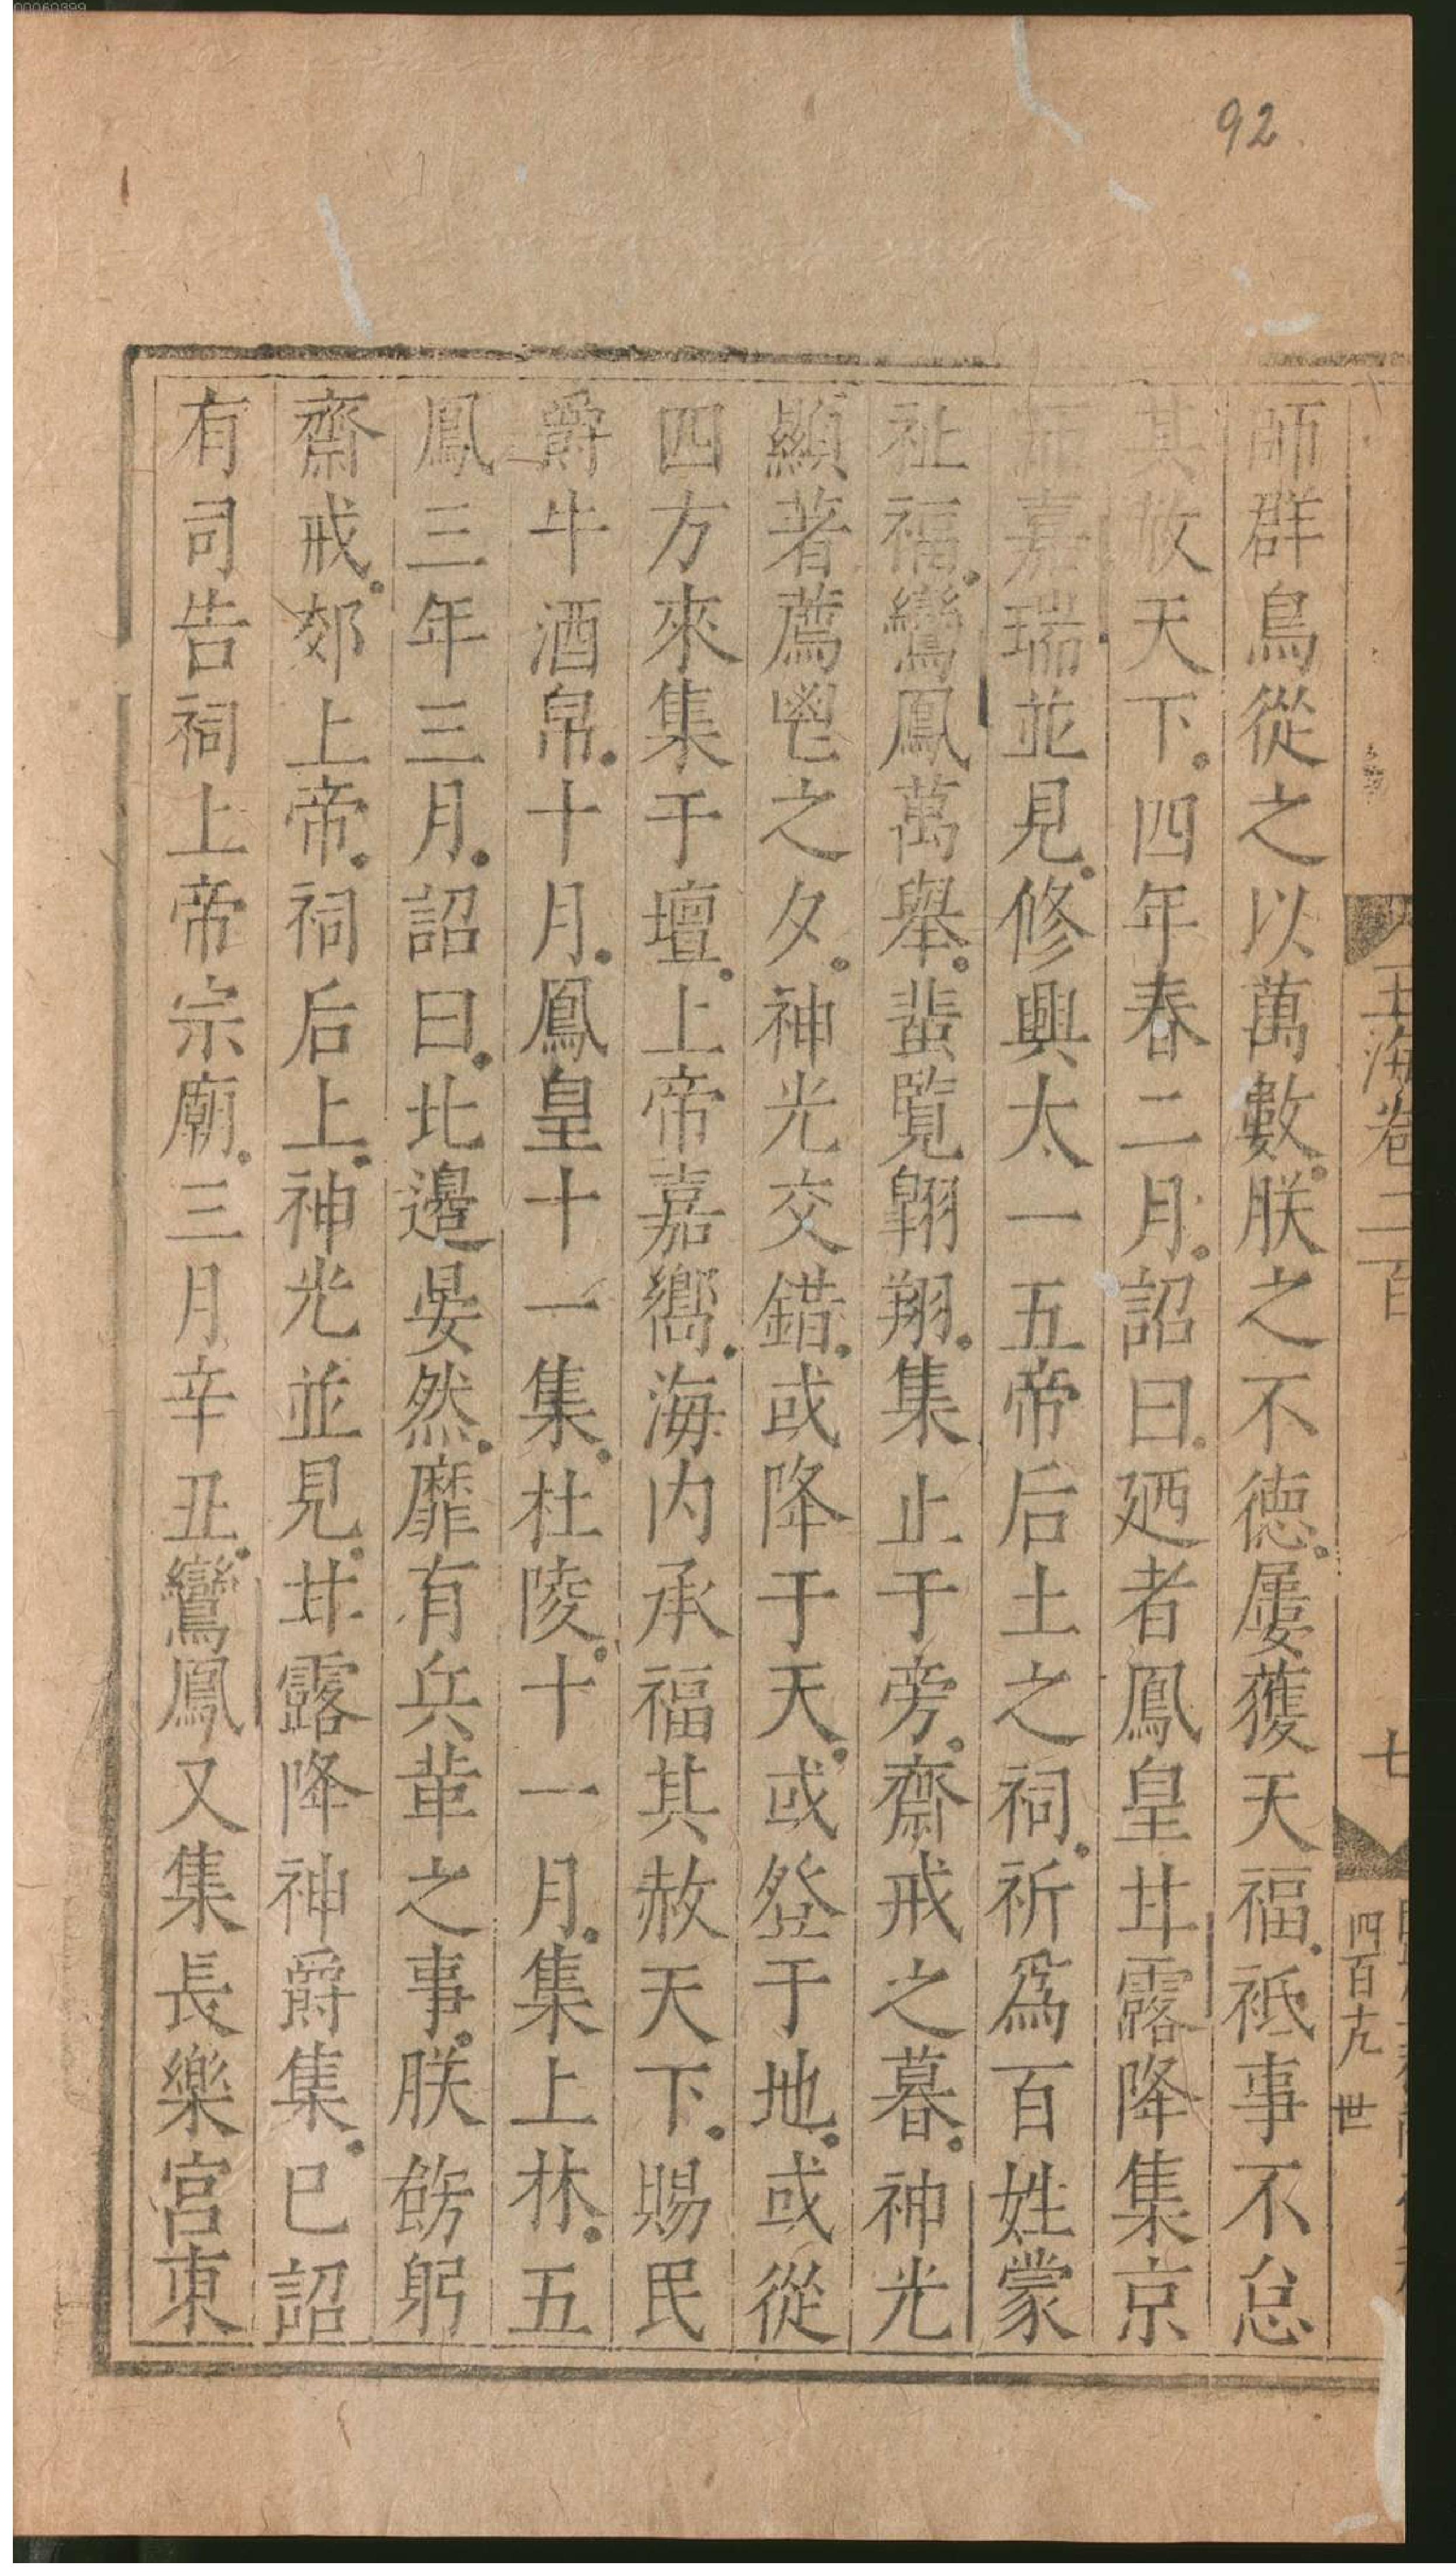 00060399
92
玉海卷二百
七
四百九 世
師群鳥從之以萬數朕之不德屢獲天福祗事不怠
其赦天下四年春二月詔曰廼者鳳皇甘露降集京
師嘉瑞並見修興太一五帝后土之祠祈爲百姓蒙
祉福鸞鳳萬舉蜚覽翱翔集止于旁齋戒之暮神光
顯著薦鬯之夕神光交錯或降于天或登于地或從
四方來集于壇上帝嘉嚮海内承福其赦天下賜民
爵牛酒帛十月鳳皇十一集杜陵十一月集上林五
鳳三年三月詔曰北邊晏然靡有兵革之事朕飭躬
齋戒郊上帝祠后土神光並見甘露降神爵集已詔
有司告祠上帝宗廟三月辛丑鸞鳳又集長樂宮東